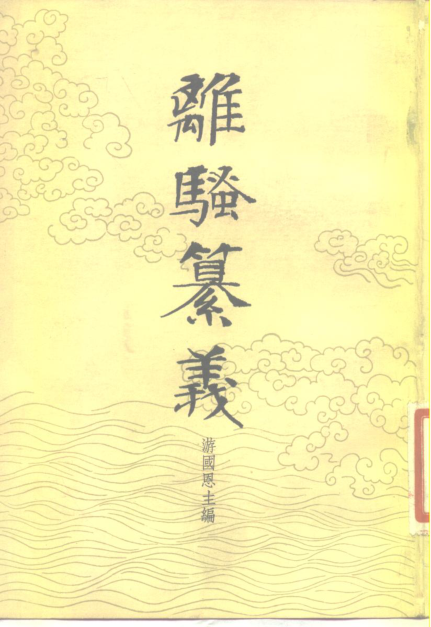 離騷纂義
游國恩主編